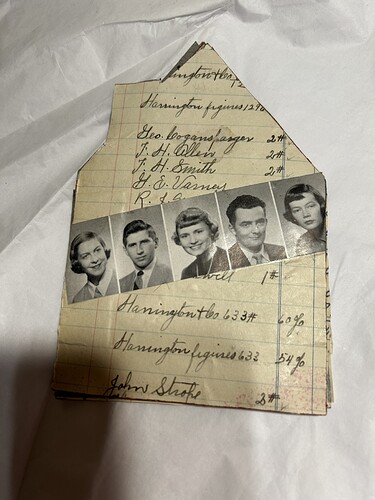 ington & Co.
Harrington figures, 1290
Geo. Bogansparger 2#
T. H. Allen 2#
T. H. Smith 2#
G. E. Varney
R.
well 1#
Harrington & Co. 633# 60%
Harrington figures 633 54%
John Strope 2#